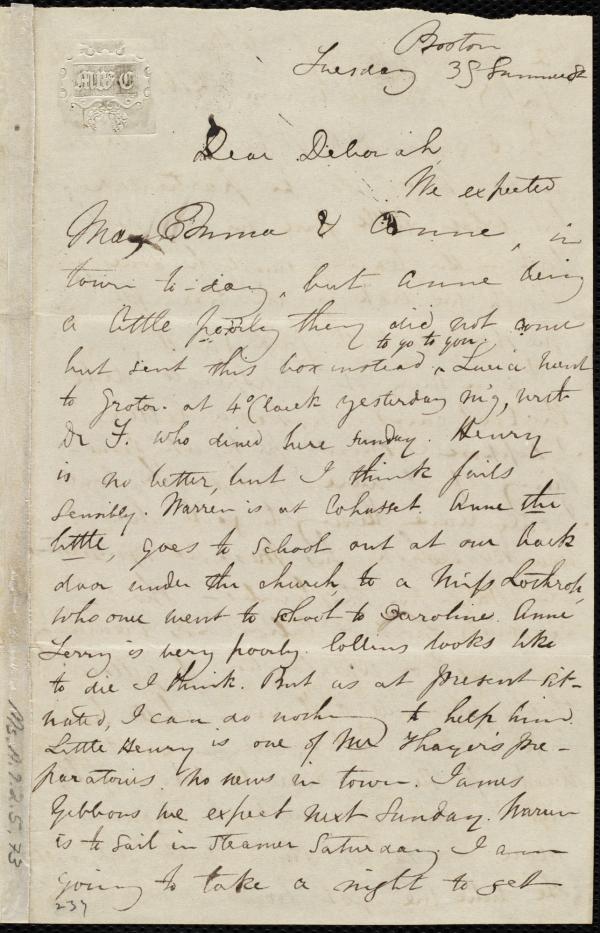 Boston
Tuesday 35 Summer St
Dear Deborah,
We expected
May, Emma & Anne, in
town to-day, but Anne being
a little poorly they did not come
to go to you.
but sent this box instead. Lucia went
to Groton at 4 o'Clock yesterday m'g, with
Dr F. who dined here Sunday. Henry
is no better, but I think fails
sensibly. Warren is at Cohasset. Anne the
little, goes to school out at our back
door under the church, to a Miss Lothrop,
who once went to school to Caroline. Anne
Terry is very poorly. Collins looks like
to die I think. But as at present sit-
uated, I can do nothing to help him.
Little Henry is one of Mr Thayer's pre-
paratories. No news in town. James
Gibbons we expect next Sunday. Warren
is to sail in steamer Saturday. I am
going to take a night to get
237
Ms.A.9.2.5,73